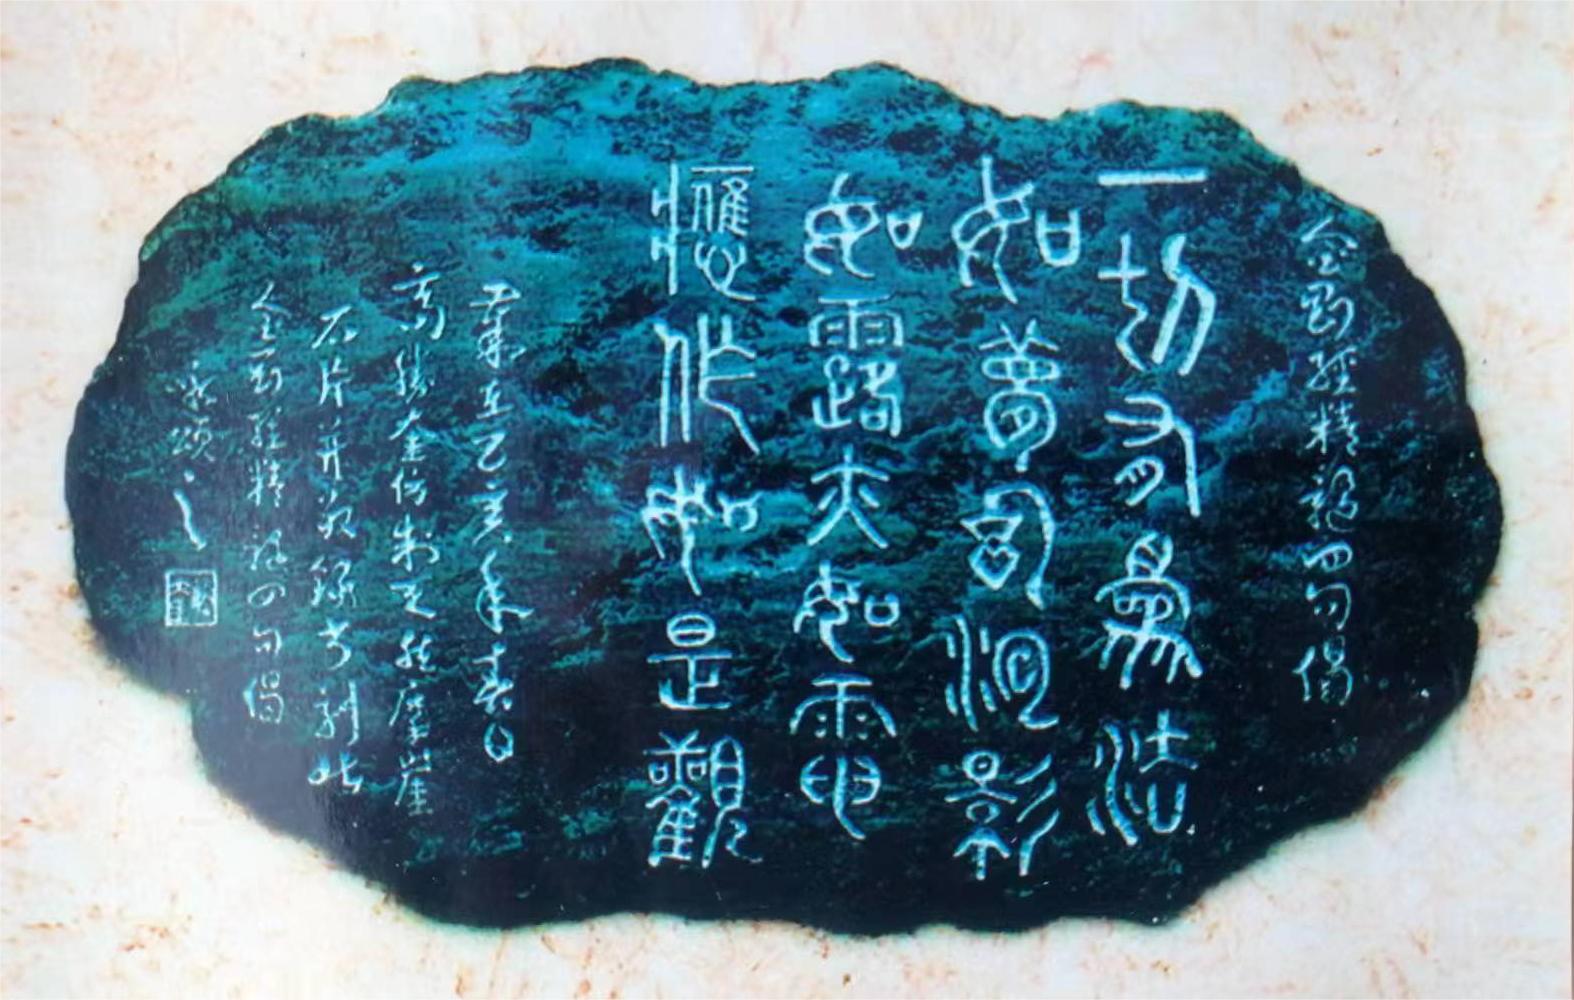 金剛經精髓四句偈
一切有為法
如夢幻泡影
如露亦如電
應作如是觀
歲在乙亥年春日
高勝奎仿制天然摩崖
石片并敬錄书刻此
金剛經精髓四句偈
永頌之